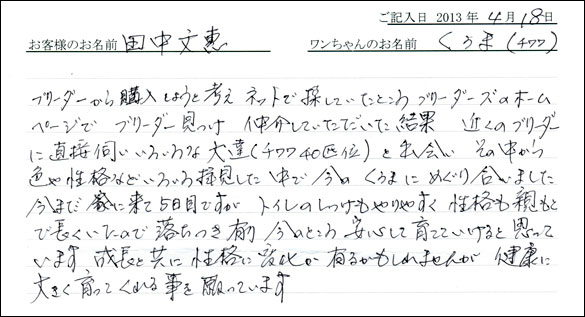 ご記入日 2013年4月18日
お客様のお名前 田中文恵 ワンちゃんのお名前 くうま(チワワ)
ブリーダーから購入しようと考え ネットで探していたところ ブリーダーズのホーム
ページで ブリーダー見つけ 仲介していただいた結果 近くのブリーダー
に直接伺いいろいろな犬達(チワワ40匹位)と出会い その中から
色や性格などいろいろ拝見した中で今の くうまにめぐり合いました
今まだ家に来て5日目ですが トイレのしつけもやりやすく 性格も親もと
で長くいたので落ちつき有り 今のところ 安心して育てていけると思って
います 成長と共に性格に変化が有るかもしれませんが 健康に
大きく育ってくれる事を願っています